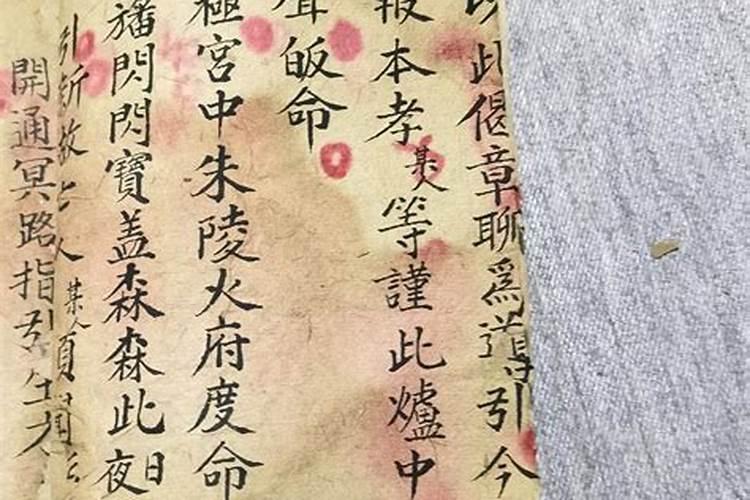 以此偈章聊爲導引今
報本孝某人等謹此爐中
皈命
極宮中朱陵火府度命
旛閃閃寶盖森森此夜日
引新故亡人某人
開通冥路指引